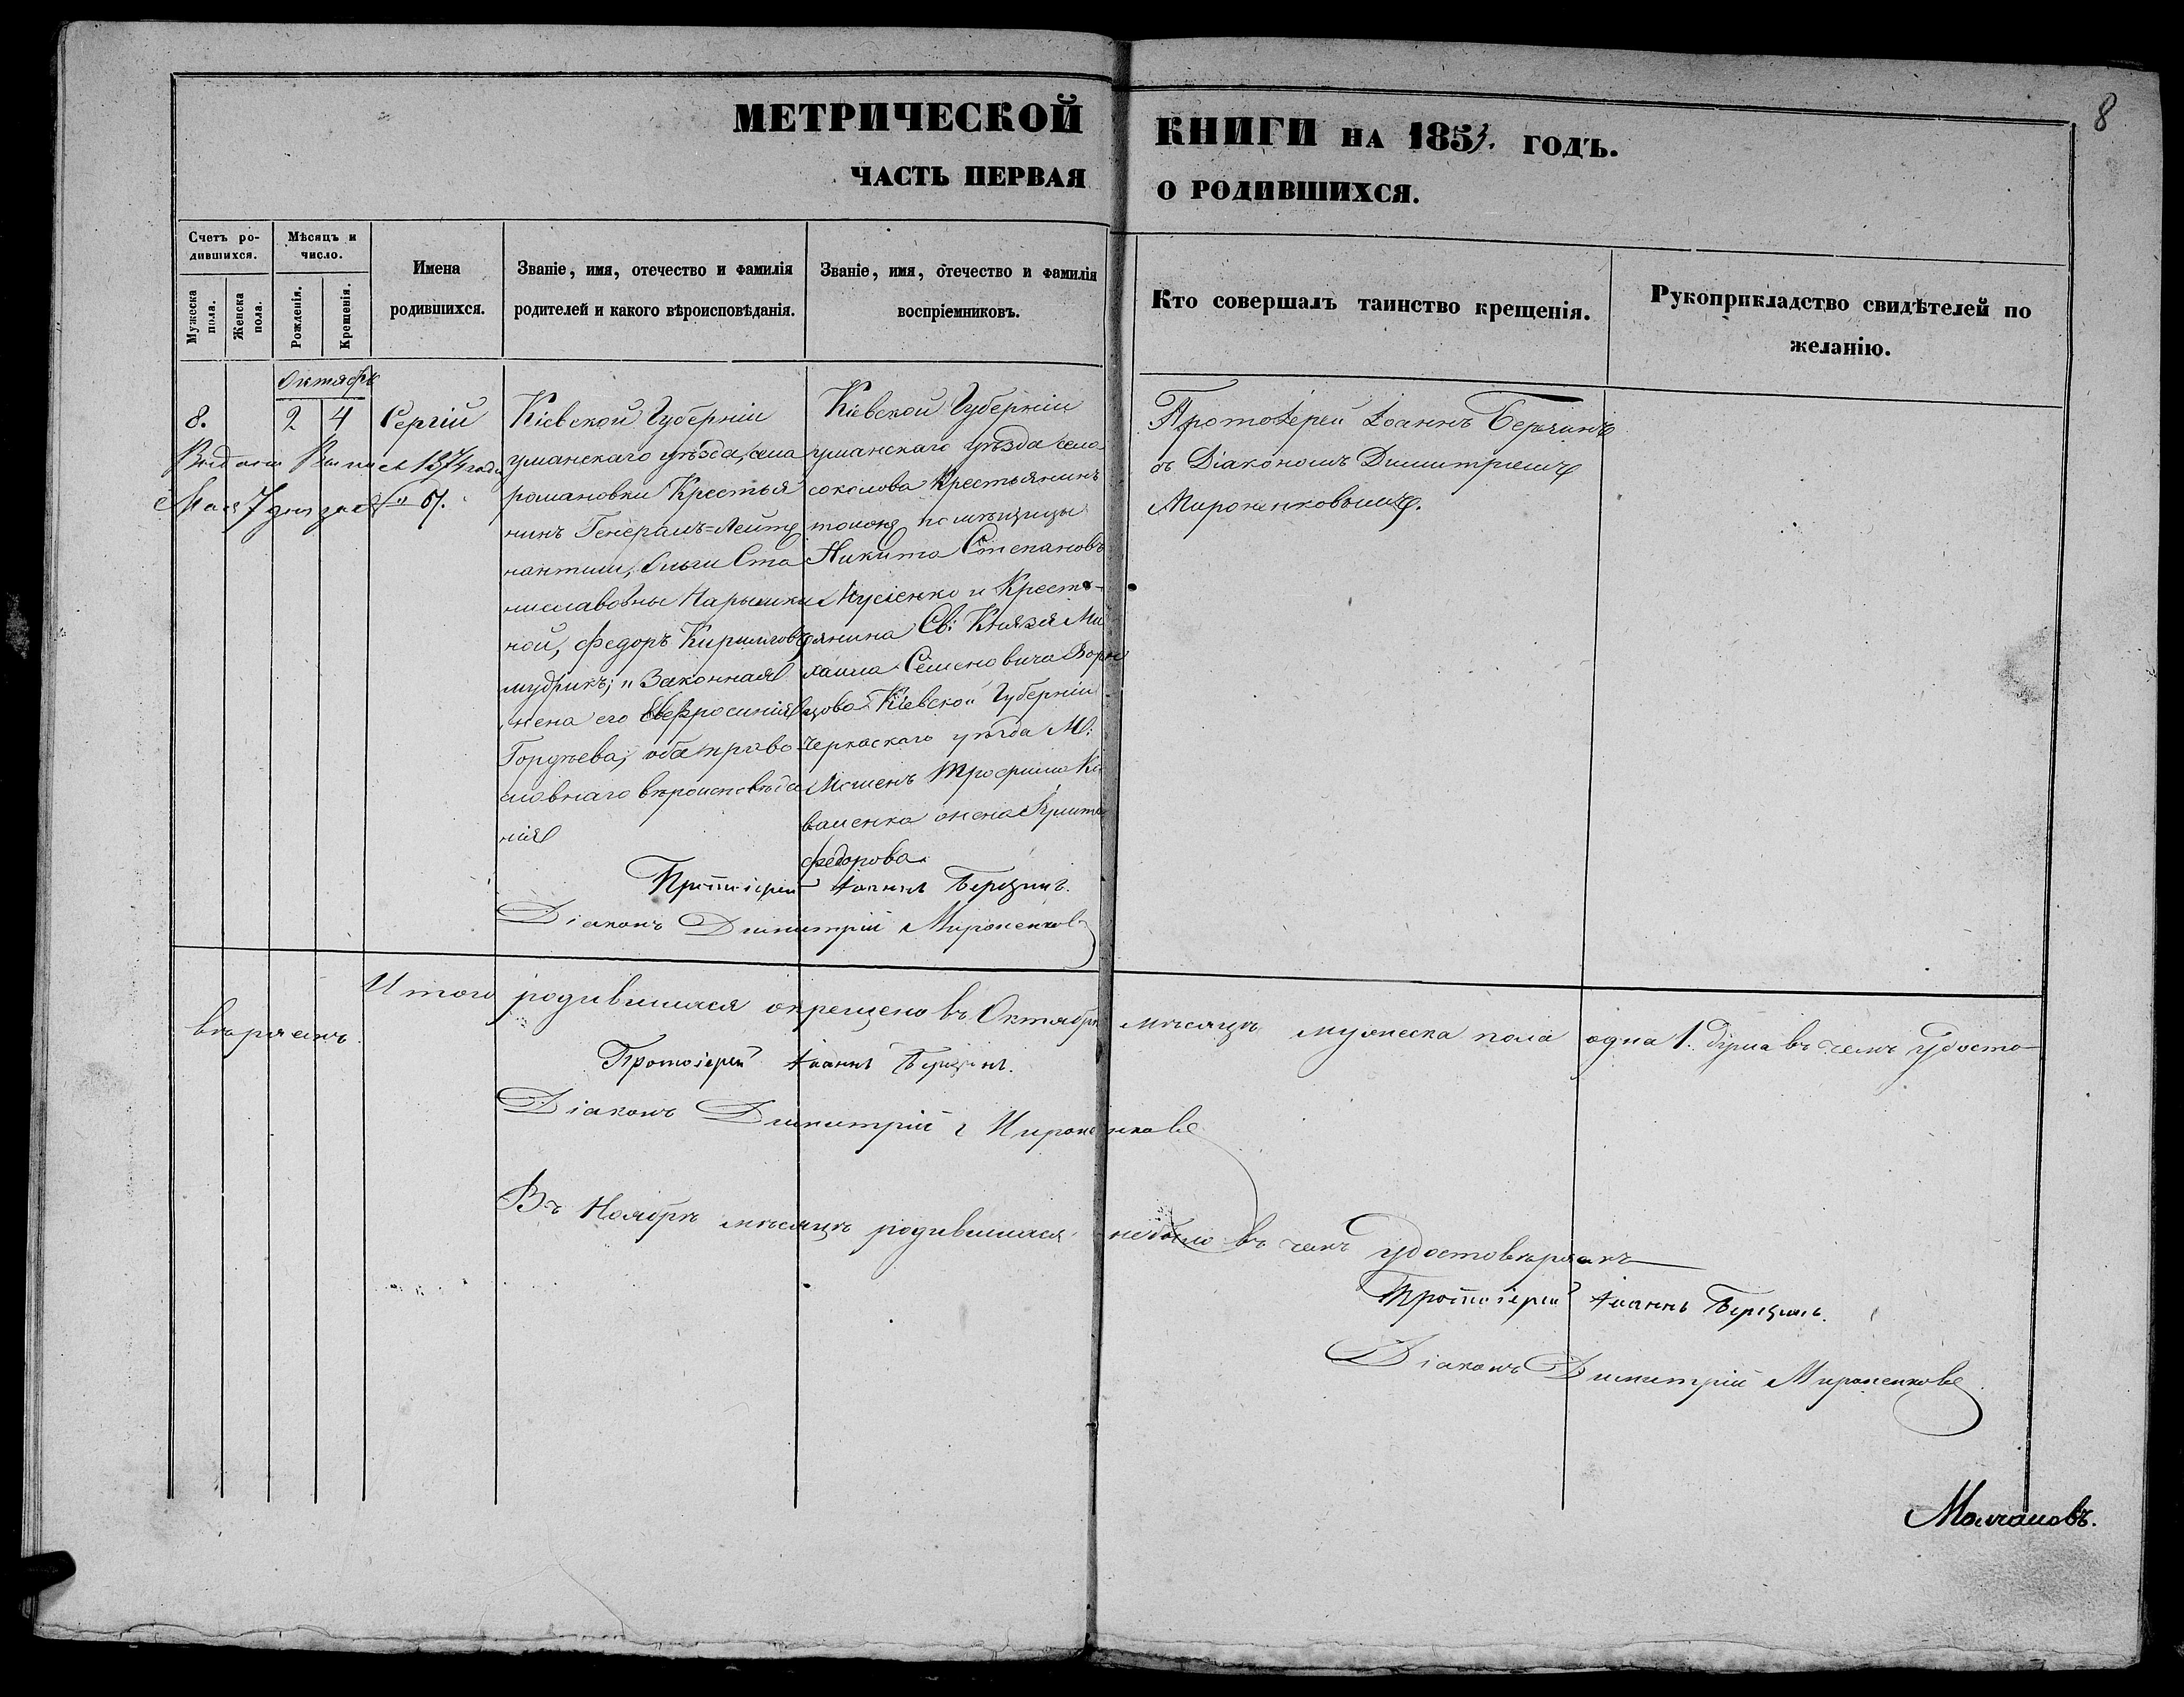 8
МЕТРИЧЕСКОЙ КНИГИ НА 1853. ГОДЪ.
ЧАСТЬ ПЕРВАЯ О РОДИВШИХСЯ.
Счетъ ро-
дившихся.
Мужеска
пола.
Женска
пола.
Мѣсяцъ и
число.
Рожденія.
Крещенія.
Имена
родившихся.
Званіе, имя, отечество и фамилія
родителей и какого вѣроисповѣданія.
Званіе, имя, отечество и фамилія
воспріемниковъ.
Кто совершалъ таинство крещенія.
Рукоприкладство свидѣтелей по
желанію.
Октябрь
8.
2
4
Сергій
Выдана Выпись 1874 года
Мая 7 дня за №
Кіевской Губерніи
уманскаго уѣзда, села
романовки Крестья
нинъ Генералъ=Лейте
нантши, Ольги Ста
ниславовны Нарышки
ной, Федоръ Кириловъ
мудрикъ; и Законная
жена его Евфросинія
Гордѣева; оба право
славнаго вѣроисповѣда
нія
Кіевской Губерніи
уманскаго уѣзда села
соколова Крестьянинъ
помѣщицы
Никита Степановъ
и Кресть-
янина Св: Князя Ми
хаила Семеновича Ворон
цова Кіевской Губерніи
Черкаскаго уѣзда М:
Мошенъ Трофима Ко
валенка жена
Федорова.
Протоіерей Іоаннъ Березинъ
съ Діакономъ Димитріемъ
Мироненковымъ.
Протоіерей Іоаннъ Березинъ.
Діаконъ Димитрій Мироненковъ
Итого родившихся окрещено въ Октябрѣ мѣсяцѣ мужеска пола одна 1. душа въ чемъ Удосто-
вѣряемъ
Протоіерей Іоаннъ Березинъ.
Діаконъ Димитрій Мироненковъ
Въ Ноябрѣ мѣсяцѣ родившихся небыло въ чемъ удостовѣряемъ
Протоіерей Іоаннъ Березинъ.
Діаконъ Димитрій Мироненковъ
Молчановъ.